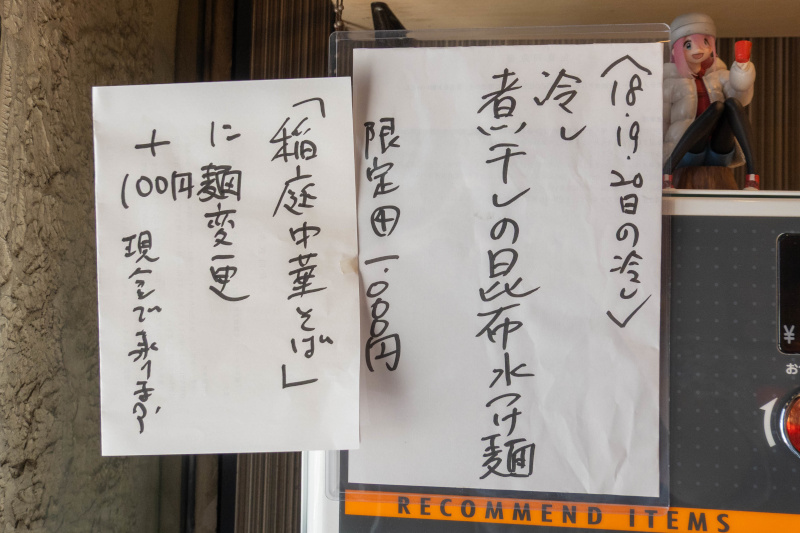 〈18.19.20日の冷し〉
冷し
煮干しの昆布水つけ麺
限定④ 1.000円
「稲庭中華そば」
に麺変更
+100円
現金で承ります。
RECOMMEND ITEMS
¥